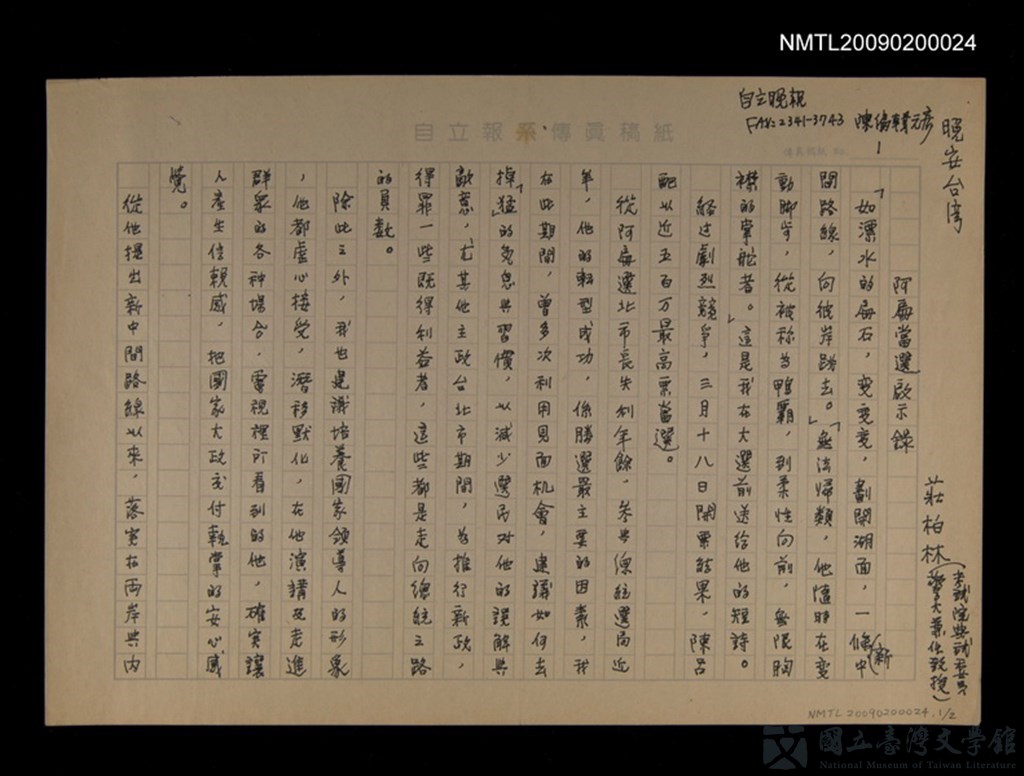 NMTL20090200024
自立報系傳眞稿紙
自立晚報
FAX:2341-3743
晚安台湾
阿扁當選啟示錄
莊柏林(考試院典試委員
警大兼任教授)
「如漂水的扁石，变变变，劃開湖面，一條(新)中
間路線，向彼岸跳去。」「無法归類，他隨時在变
動脚步，從被称為鴨霸，到柔性向前，無限胸
襟的掌舵者。」這是我在大選前送给他的短詩。
經过劇烈競爭，三月十八日開票結果，陳呂
配以近五百万最高票當選。
從阿扁選北市長失利年餘，參与總統選局近
年，他的転型成功，係勝選最主要的因素，我
在此期間，曾多次利用見面机會，建議如何去
掉「猛」的免息與習慣，以减少選民对他的誤解與
敵意，尤其他主政台北市期間，為推行新政，
得罪一些既得利益者，這些都是走向總統之路
的負數。
除此之外，我也建議培養國家領導人的形象
，他都虛心接受，潛移默化，在他演講及走進
群眾的各种場合，電視裡所看到的他，確实讓
人產生信賴感，把國家大政交付執掌的安心感
覺。
從他提出新中間路線以來，落实在兩岸與內
NMTL 20090200024.1/2
國立臺灣文學館
National Museum of Taiwan Literature